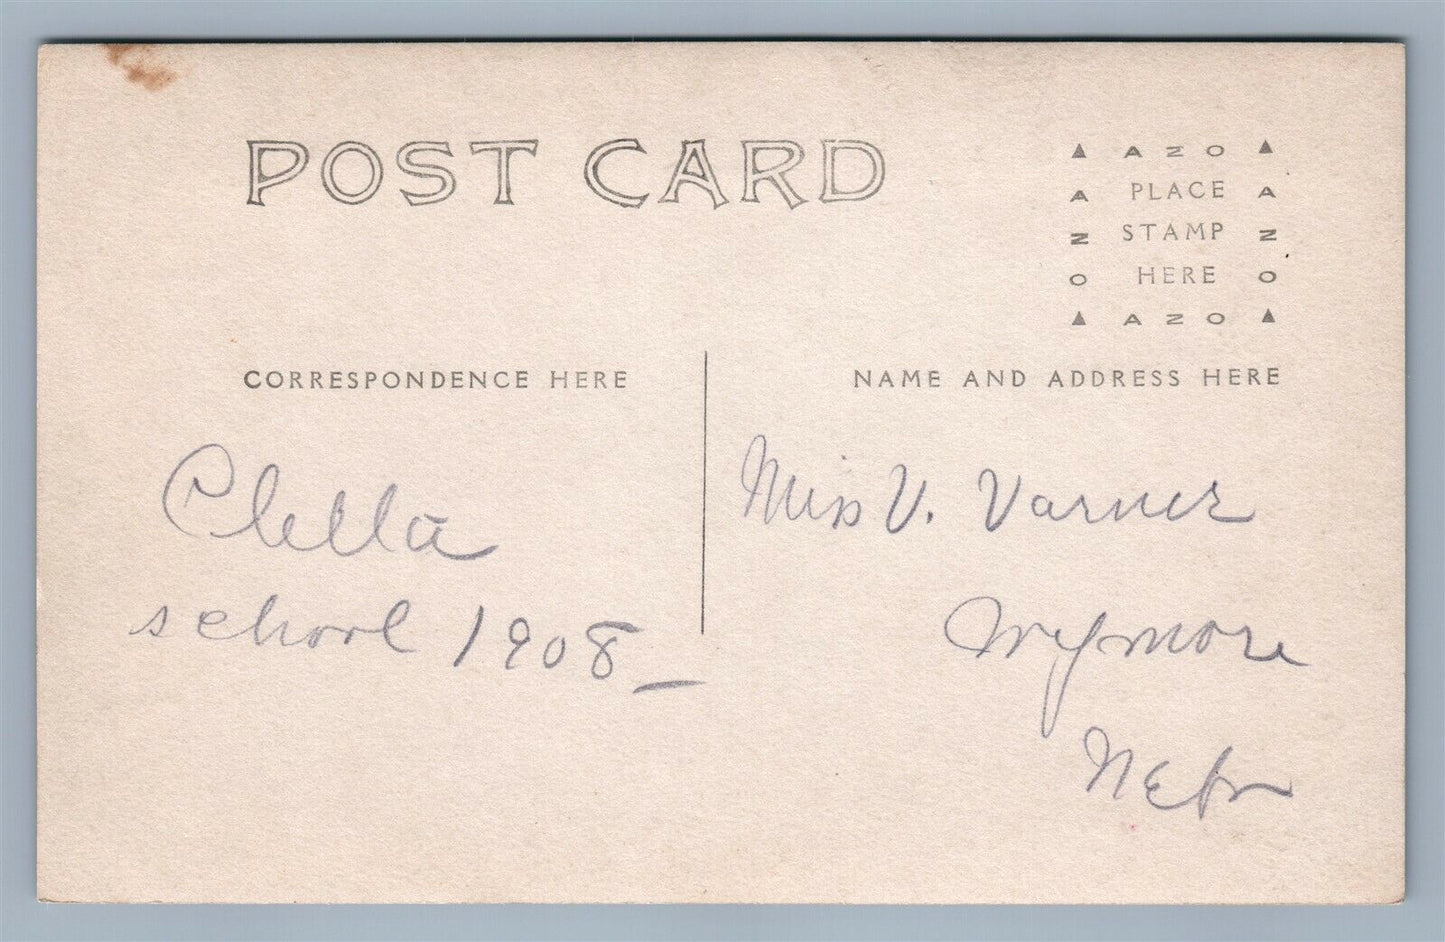 POST CARD
▲ AZO ▲
A PLACE A
Z STAMP Z
O HERE O
▲ AZO ▲
CORRESPONDENCE HERE
NAME AND ADDRESS HERE
Clella
school 1908_
Miss V. Varner
Wymore
Nebr